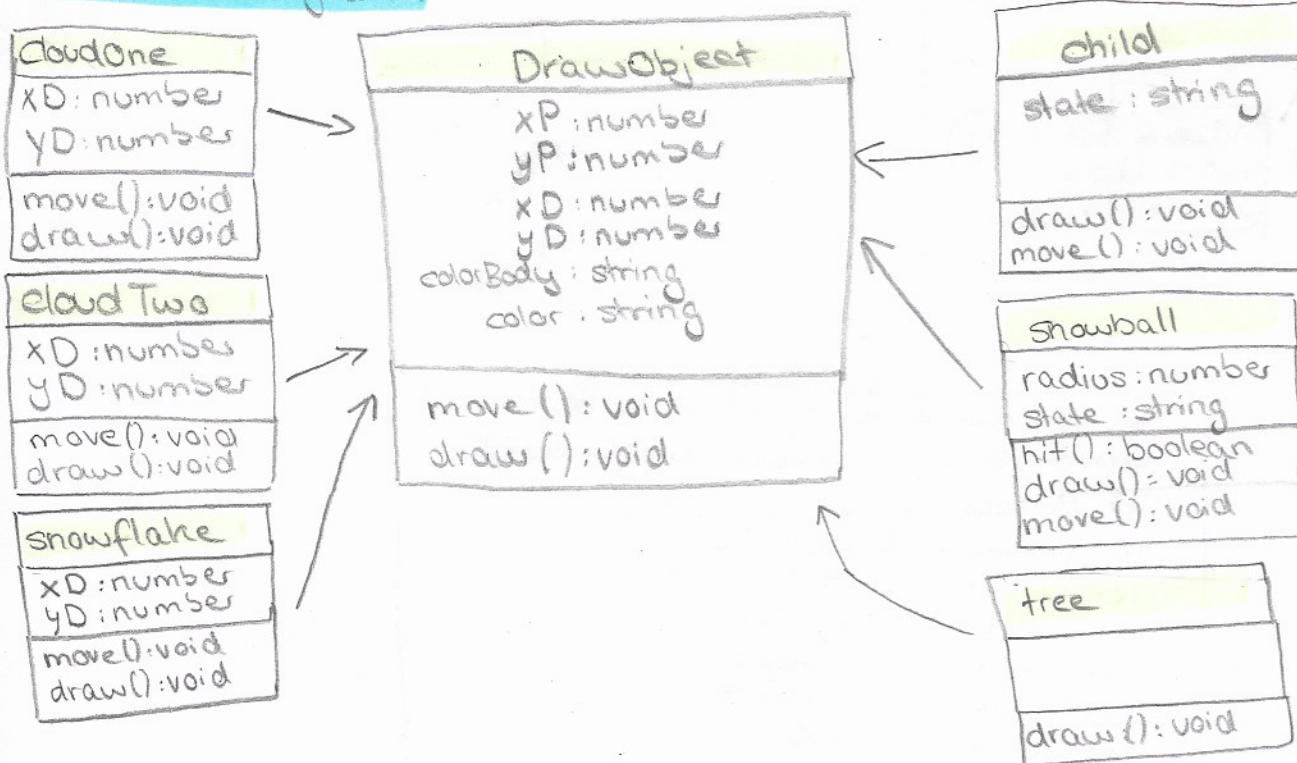 CloudOne
xD: number
yD: number
move(): void
draw(): void
cloud Two
xD: number
yD: number
move(): void
draw(): void
snowflake
xD: number
yD: number
move(): void
draw(): void
DrawObject
xP: number
yP: number
xD: number
yD: number
colorBody: string
color: string
move(): void
draw(): void
child
state: string
draw(): void
move(): void
snowball
radius: number
state: string
hit(): boolean
draw(): void
move(): void
tree
draw(): void